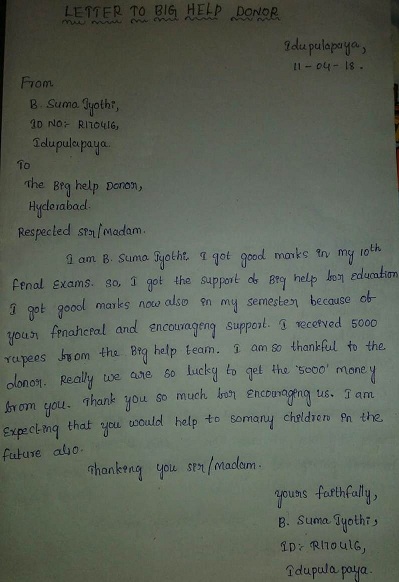 LETTER TO BIG HELP DONOR
Idupulapaya,
11-04-18.
From
B. Suma Jyothi,
ID NO:- R170416,
Idupulapaya.
To
The Big help Donor,
Hyderabad.
Respected sir/madam.
I am B. Suma Jyothi. I got good marks in my 10th
final Exams. So, I got the support of Big help for education
I got good marks now also in my semester because of
your financial and encouraging support. I received 5000
rupees from the Big help team. I am so thankful to the
donor. Really we are so lucky to get the '5000' money
from you. Thank you so much for Encouraging us. I am
Expecting that you would help to somany children in the
future also.
Thanking you sir/madam.
yours faithfully,
B. Suma Jyothi,
ID:- R170416,
Idupulapaya.